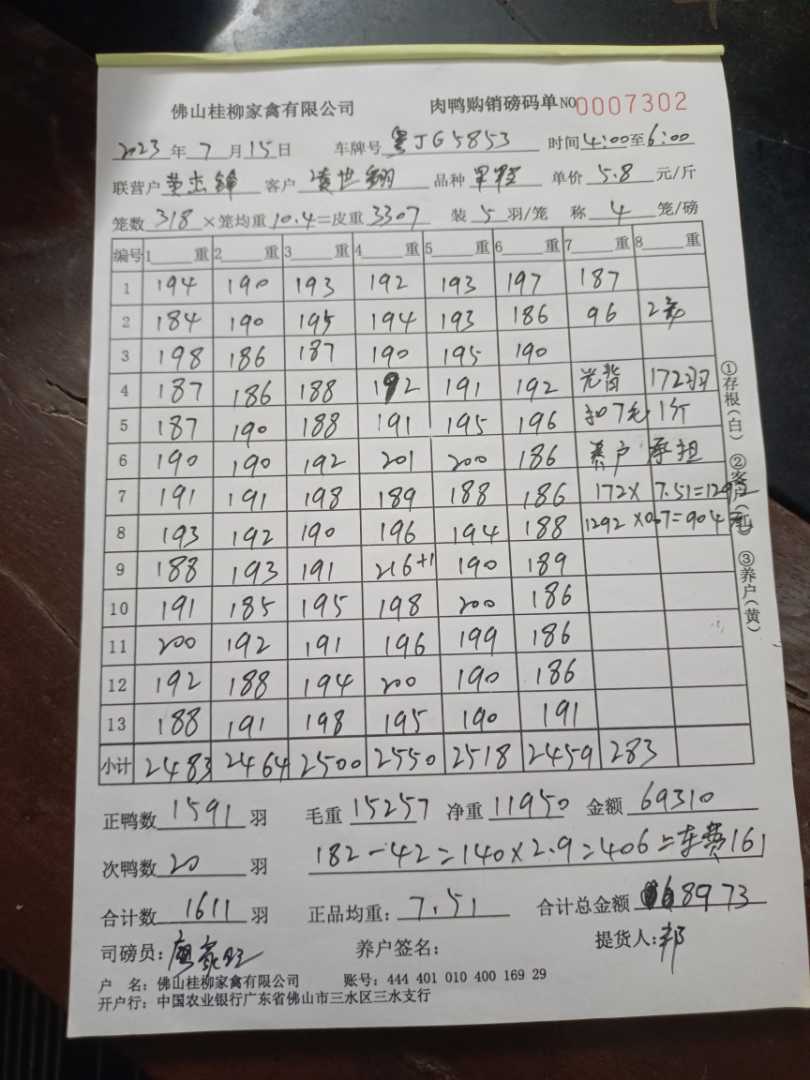 佛山桂柳家禽有限公司 肉鸭购销磅码单 NO 0007302
2023 年 7 月 15 日 车牌号 粤JG5853 时间 4:00 至 6:00
联营户 客户 凌世 品种 单价 5.8 元/斤
笼数 318 ×笼均重 10.4 =皮重 3307 装 5 羽/笼 称 4 笼/磅
编号 1 重 2 重 3 重 4 重 5 重 6 重 7 重 8 重
1 194 190 193 192 193 197 187
2 184 190 195 194 193 186 96 2
3 198 186 187 190 195 190
4 187 186 188 192 191 192 光背 172羽
5 187 190 188 191 195 196 扣7毛1斤
6 190 190 192 201 200 186 养户 承担
7 191 191 198 189 188 186 172× 7.51=1292
8 193 192 190 196 194 188 1292×0.7=904元
9 188 193 191 216+1 190 189
10 191 185 195 198 200 186
11 200 192 191 196 199 186
12 192 188 194 200 190 186
13 188 191 198 195 190 191
小计 2483 2464 2500 2550 2518 2459 283
①存根(白) ②客户(红) ③养户(黄)
正鸭数 1591 羽 毛重 15257 净重 11950 金额 69310
次鸭数 20 羽 182-42=140×2.9=406=车费161
合计数 1611 羽 正品均重: 7.51 合计总金额 68973
司磅员: 养户签名: 提货人: 邦
户 名: 佛山桂柳家禽有限公司 账号: 444 401 010 400 169 29
开户行: 中国农业银行广东省佛山市三水区三水支行